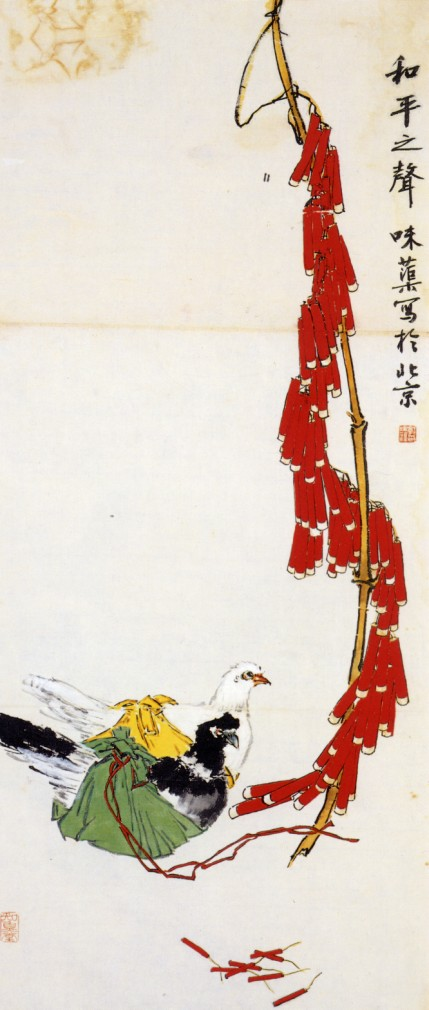 和平之聲 味蕖写於北京